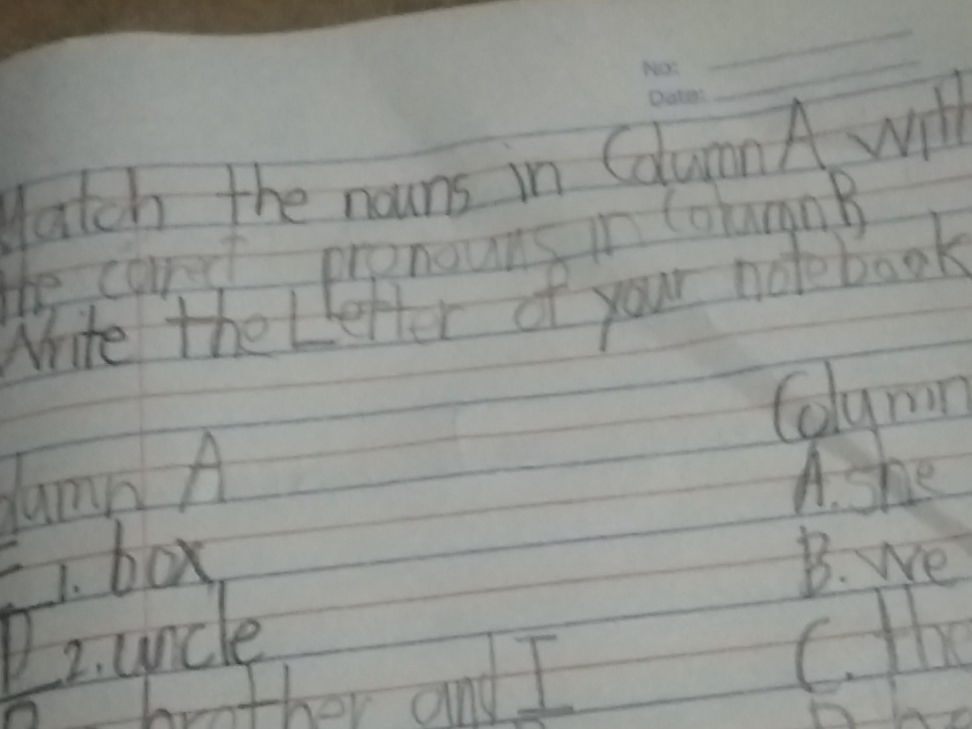 No:
Date:
Match the nouns in Column A with
the correct pronouns in Column B
Write the Letter of your notebook
Column
Column A
A. she
1. box
B. we
D 2. uncle
C. the
brother and I